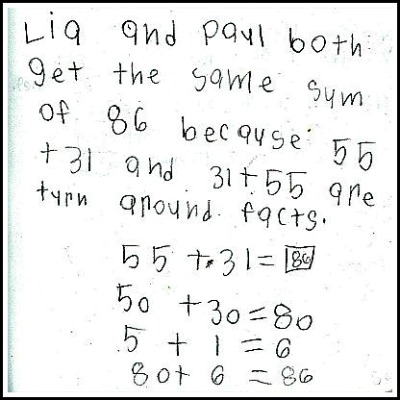 Lia and Paul both
get the same sum
of 86 because: 55
+31 and 31+55 are
turn around facts.
55 + 31 = 86
50 + 30 = 80
5 + 1 = 6
80+ 6 = 86